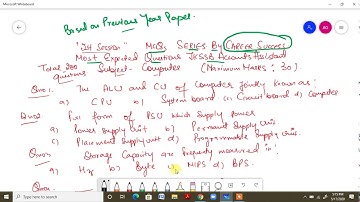 Microsoft Whiteboard
Based on Previous Year Paper.
"1st Session" MCQs SERIES By CAREER SUCCESS
Most Expected Questions JKSSB Accounts Assistant
Total 200 questions Subject - Computer (Maximum Marks: 30)
Qno1. The ALU and CU of Computer jointly known as:
a) CPU b) System board c) Circuit board d) Computer
Qno2 Full form of PSU which supply power
a) Power Supply Unit b) Permanent Supply Unit
c) Placement Supply Unit d) Programmable Supply Unit.
Qno3 Storage Capacity are frequently measured in:
a) Hz b) Byte c) MIPS d) BPS.
Qno
5:15 PM
5/17/2020